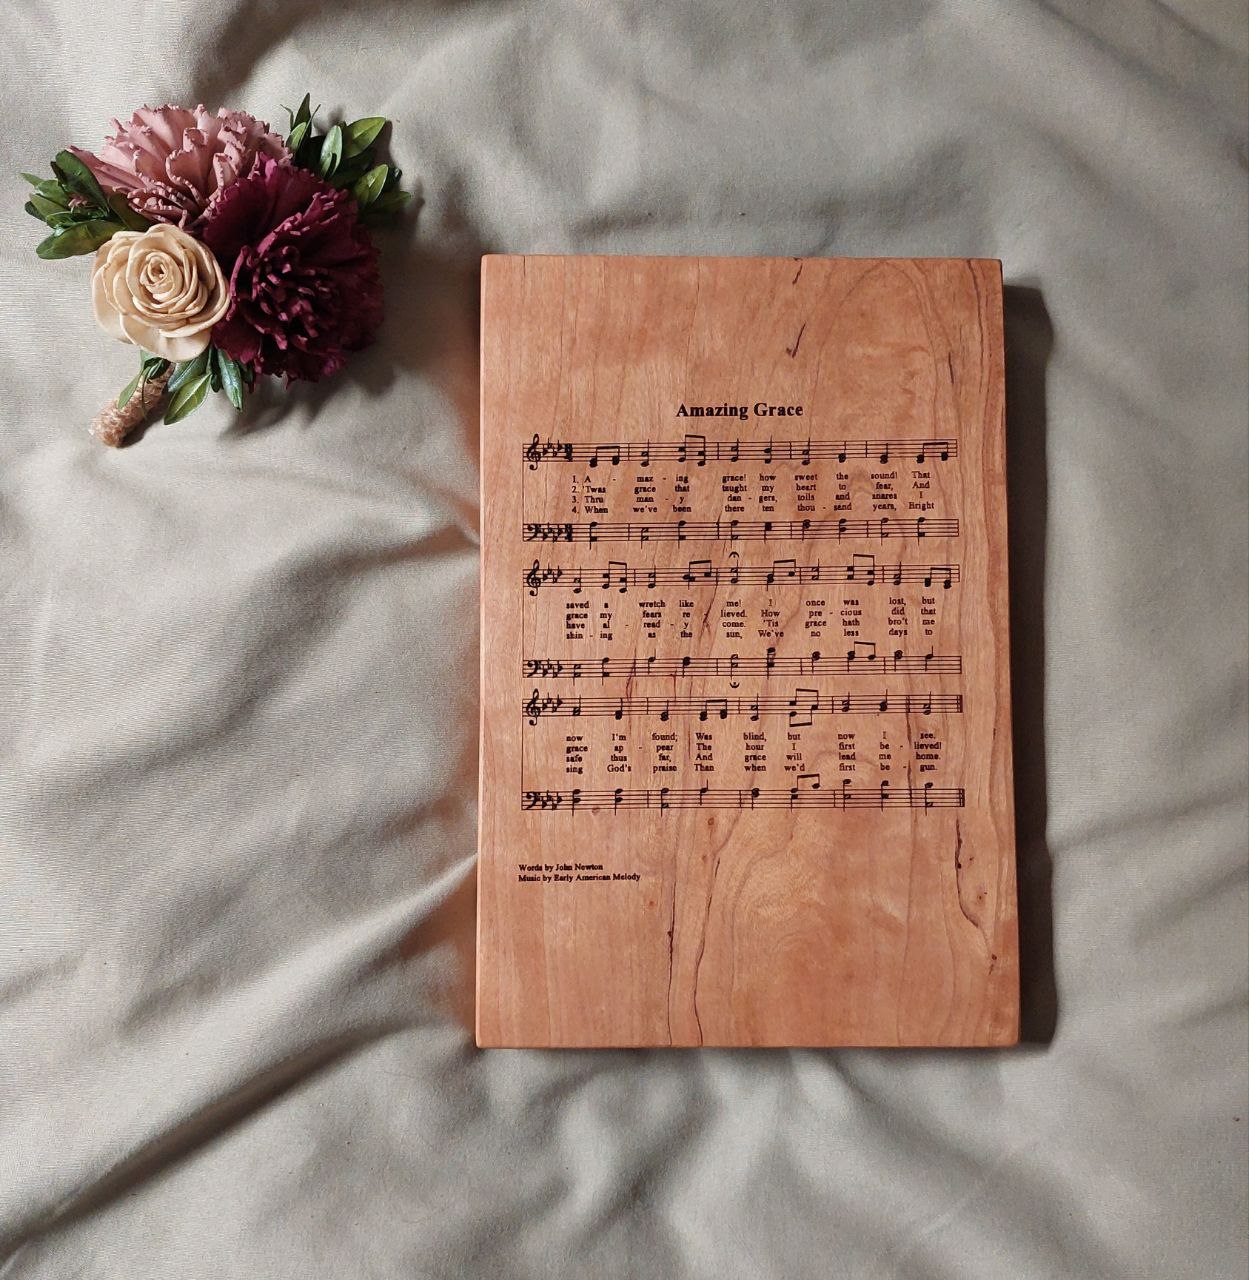 Amazing Grace
1. A - maz - ing grace! how sweet the sound! That
2. 'Twas grace that taught my heart to fear, And
3. Thru man - y dan - gers, toils and snares I
4. When we've been there ten thou - sand years, Bright
saved a wretch like me! I once was lost, but
grace my fears re - lieved. How pre - cious did that
have al - read - y come. 'Tis grace hath bro't me
shin - ing as the sun, We've no less days to
now I'm found; Was blind, but now I see.
grace ap - pear The hour I first be - lieved!
safe thus far, And grace will lead me home.
sing God's praise Than when we'd first be - gun.
Words by John Newton
Music by Early American Melody